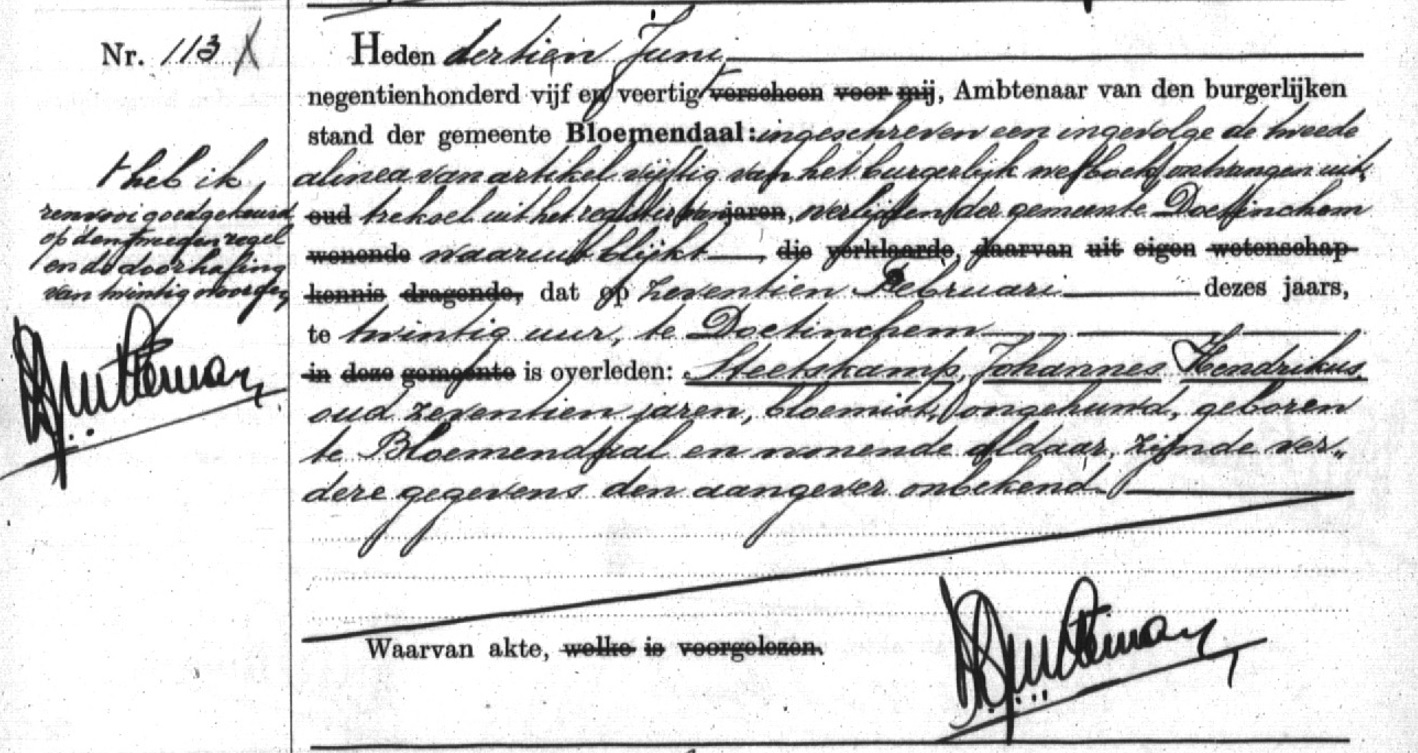 Nr. 113 X
Heden dertien Juni
negentienhonderd vijf en veertig verscheen voor mij, Ambtenaar van den burgerlijken
stand der gemeente Bloemendaal: ingeschreven een ingevolge de tweede
alinea van artikel vijftig van het burgerlijk wetboek ontvangen uit
oud treksel uit het register van jaren, overlijden der gemeente Doetinchem
wonende waaruit blijkt, die verklaarde, daarvan uit eigen wetenschap
kennis dragende, dat op zeventien Februari dezes jaars,
te twintig uur, te Doetinchem
in deze gemeente is overleden: Steetskamp, Johannes Hendrikus,
oud zeventien jaren, bloemist, ongehuwd, geboren
te Bloemendaal en wonende aldaar, zijnde ver„
dere gegevens den aangever onbekend.
Waarvan akte, welke is voorgelezen.
heb ik,
renvooi goedgekeurd
op den tweeden regel
en de doorhaling
van twintig woorden